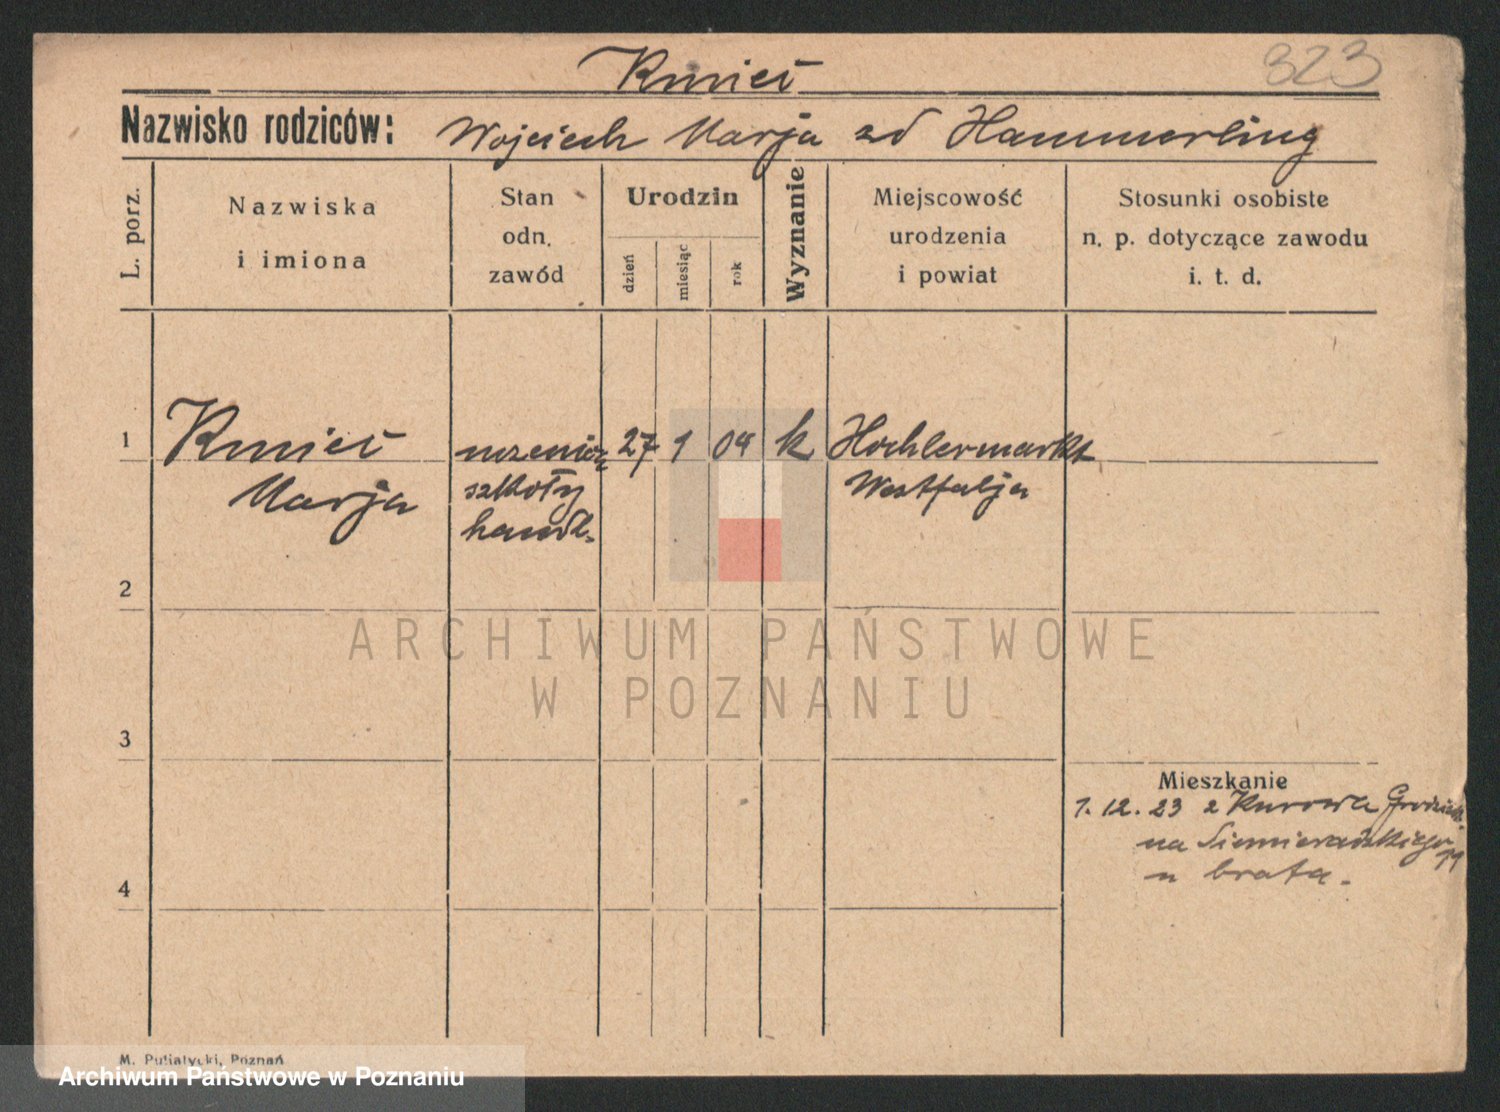 Kmieć
323
Nazwisko rodziców: Wojciech Marja zd Hammerling
L. porz.
Nazwiska
i imiona
Stan
odn.
zawód
Urodzin
dzień
miesiąc
rok
Wyznanie
Miejscowość
urodzenia
i powiat
Stosunki osobiste
n. p. dotyczące zawodu
i. t. d.
1 Kmieć uczenica 27 1 04 k Hochlermarkt
Marja szkoły Westfalja
handl.
2
3
4
Mieszkanie
1. 12. 23 z Kurowa Grodzisk
na Siemieradzkiego 11
u brata.
ARCHIWUM PAŃSTWOWE
W POZNANIU
M. Putiatycki, Poznań
Archiwum Państwowe w Poznaniu